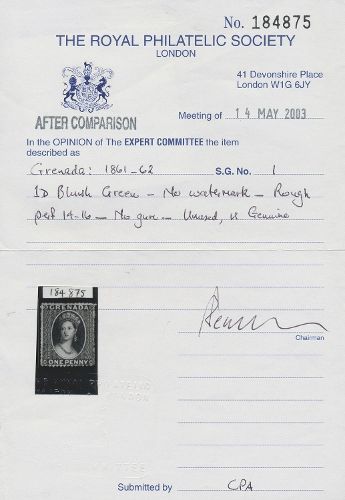 No. 184875
THE ROYAL PHILATELIC SOCIETY
LONDON
41 Devonshire Place
London W1G 6JY
AFTER COMPARISON
Meeting of 14 MAY 2003
In the OPINION of The EXPERT COMMITTEE the item
described as
Grenada: 1861-62 S.G. No. 1
1D Bluish Green - No watermark - Rough
perf 14-16 - No gum - Unused, is Genuine
184 875
GRENADA
ONE PENNY
Chairman
ROYAL PHILATELIC
LONDON
Submitted by CPA